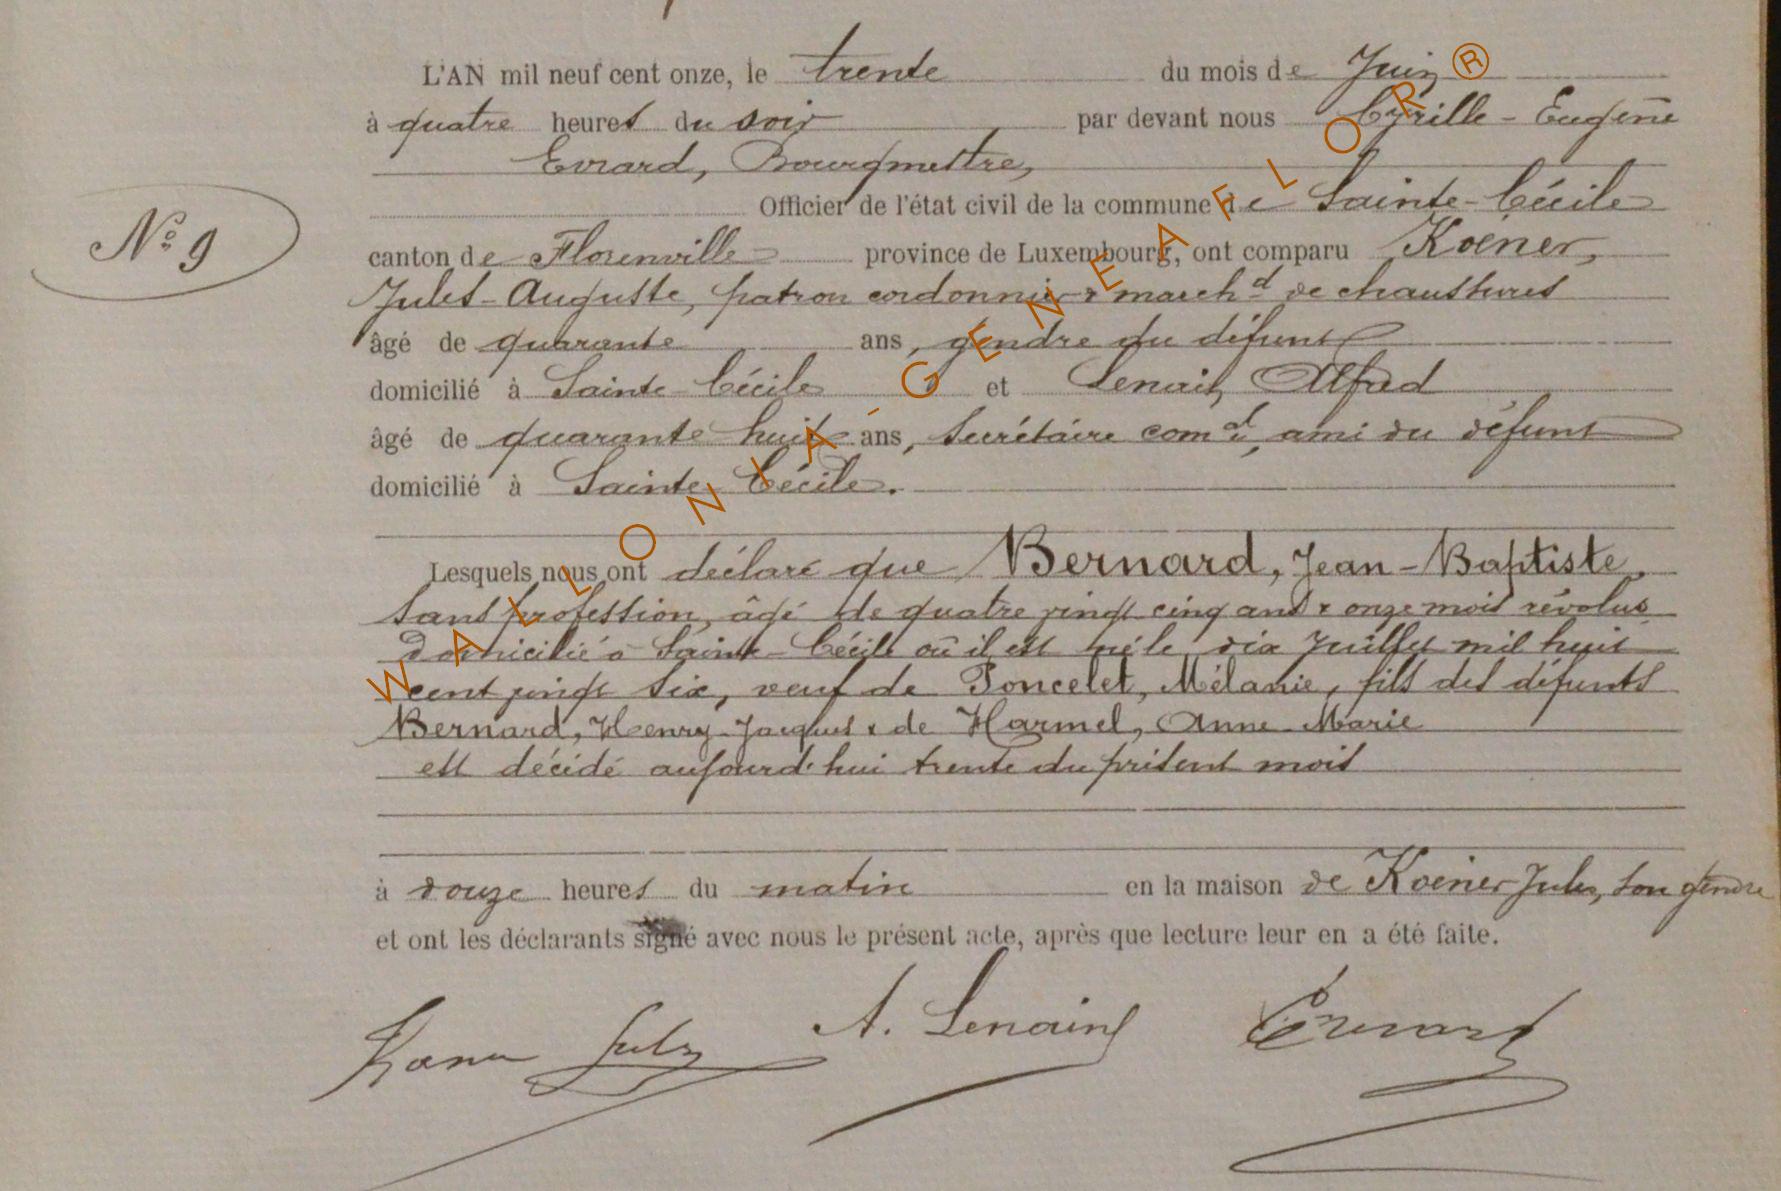 L'AN mil neuf cent onze, le trente du mois de Juin
à quatre heures du soir par devant nous Cyrille-Eugène
Evrard, Bourgmestre,
Officier de l'état civil de la commune de Sainte-Cécile
N° 9
canton de Florenville province de Luxembourg, ont comparu Koener,
Jules-Auguste, patron cordonnier & march^d de chaussures
âgé de quarante ans, gendre du défunt
domicilié à Sainte Cécile et Lenain, Alfred
âgé de quarante huit ans, Secrétaire com^al, ami du défunt
domicilié à Sainte Cécile.
Lesquels nous ont déclaré que Bernard, Jean-Baptiste,
sans profession, âgé de quatre vingt cinq ans & onze mois révolus
domicilié à Sainte-Cécile où il est né le dix Juillet mil huit
cent vingt six, veuf de Poncelet, Mélanie, fils des défunts
Bernard, Henry-Jacques & de Harmel, Anne-Marie
est décédé aujourd'hui trente du présent mois
à douze heures du matin en la maison de Koener Jules, son gendre
et ont les déclarants signé avec nous le présent acte, après que lecture leur en a été faite.
Koener Jules A. Lenain Evrard
WALLONIA-GENEAFLOR®